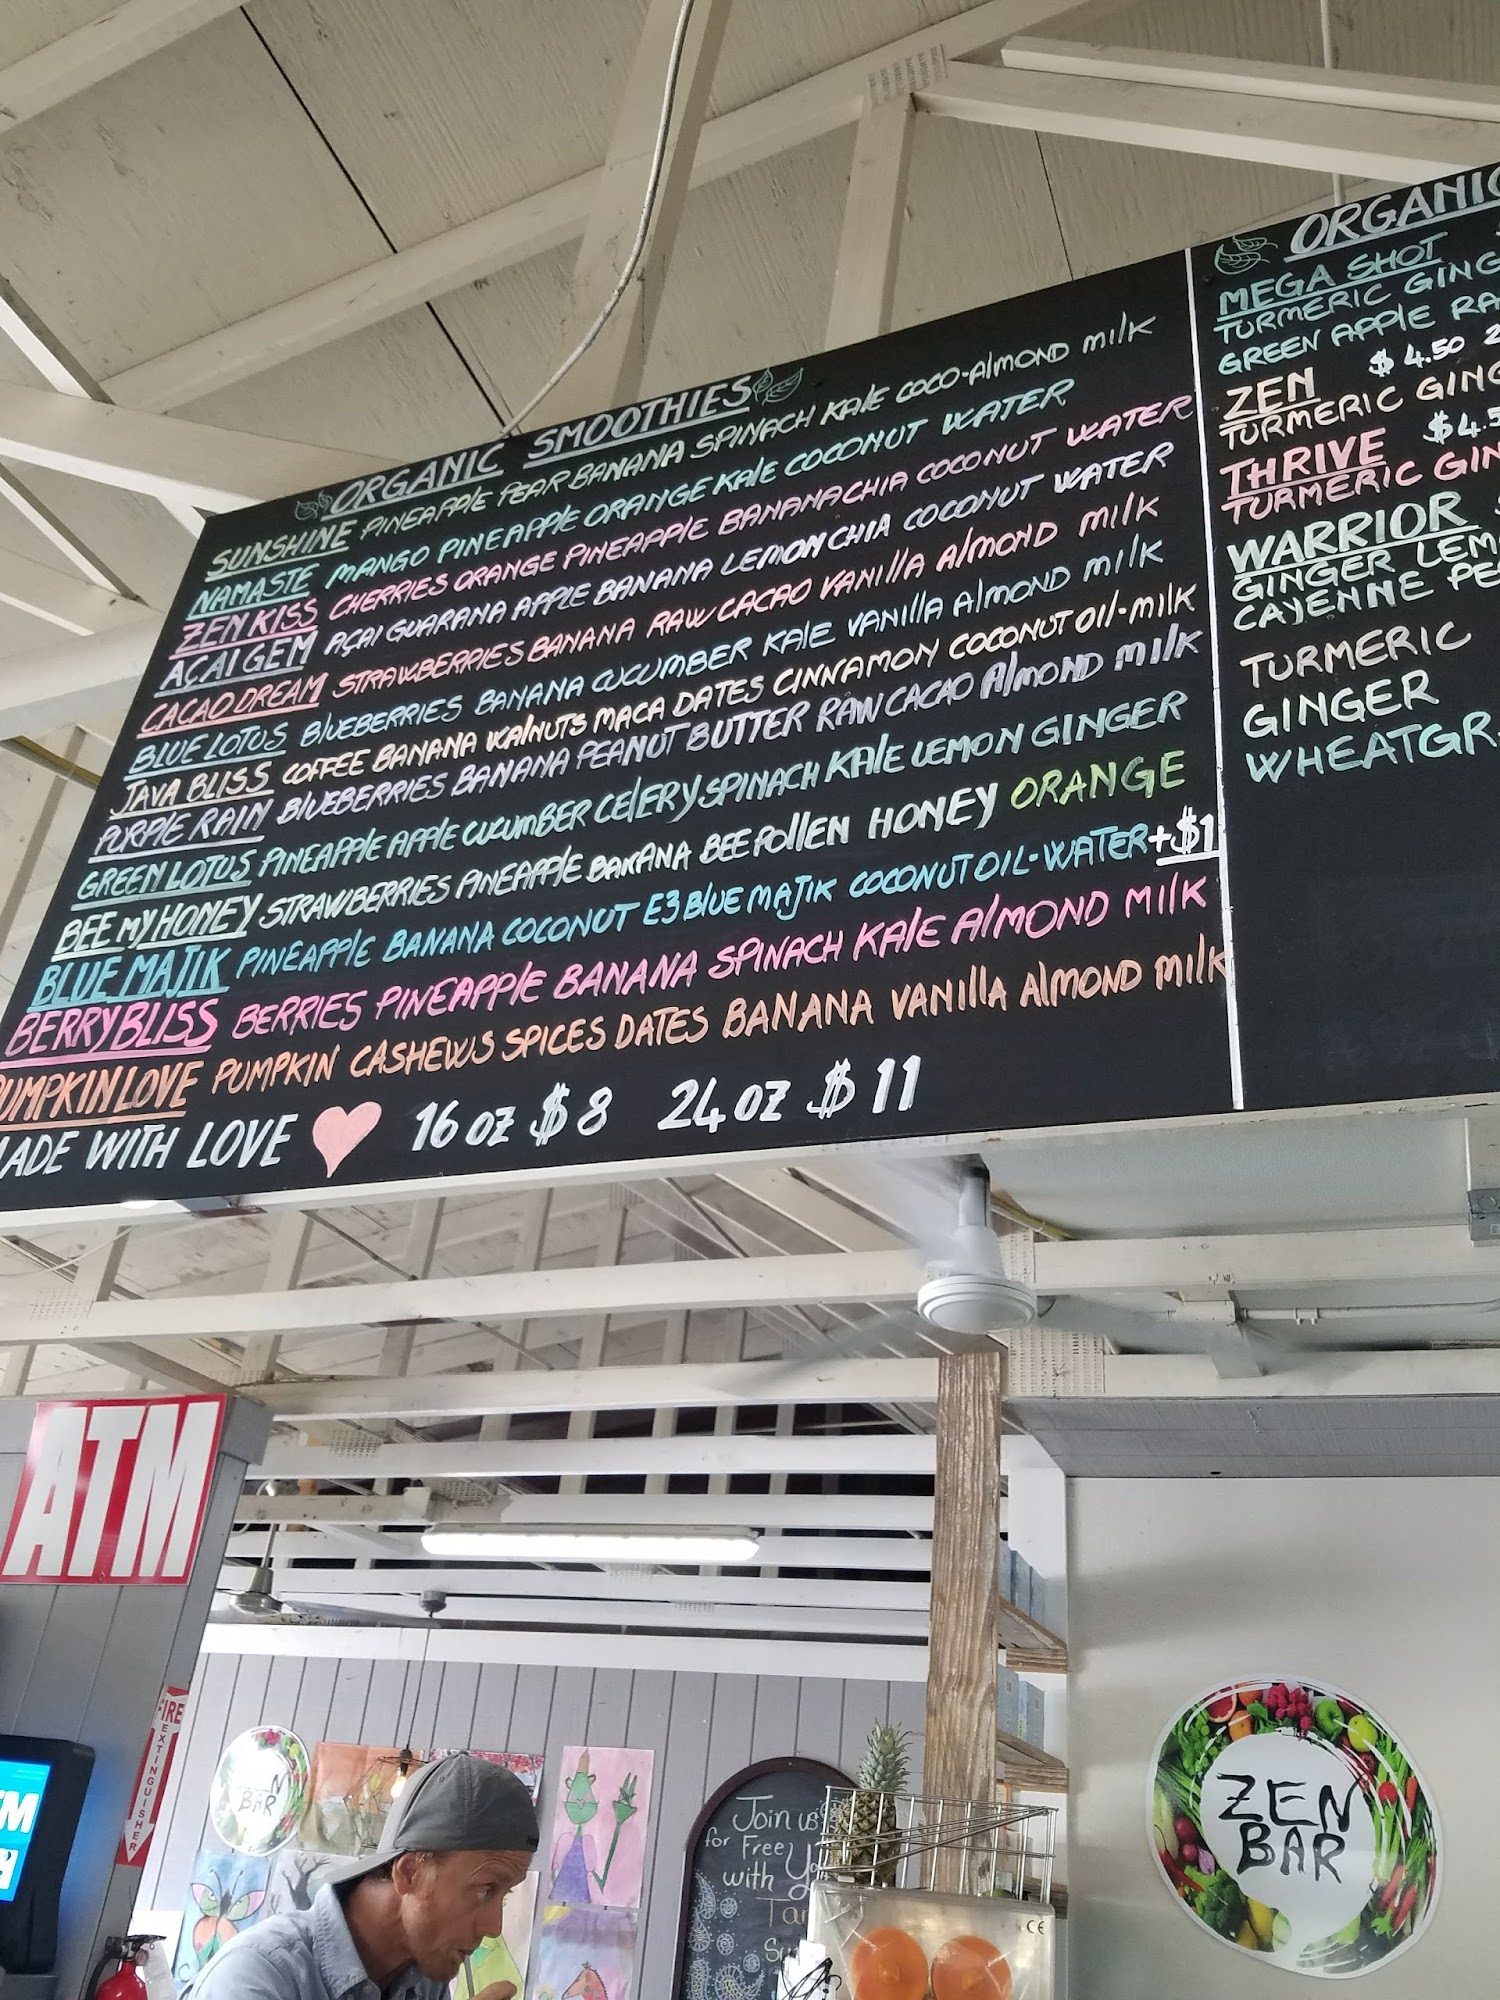 ORGANIC SMOOTHIES
SUNSHINE PINEAPPLE PEAR BANANA SPINACH KALE COCO-ALMOND MILK
NAMASTE MANGO PINEAPPLE ORANGE KALE COCONUT WATER
ZEN KISS CHERRIES ORANGE PINEAPPLE BANANA CHIA COCONUT WATER
AÇAI GEM AÇAI GUARANA APPLE BANANA LEMON CHIA COCONUT WATER
CACAO DREAM STRAWBERRIES BANANA RAW CACAO VANILLA ALMOND MILK
BLUE LOTUS BLUEBERRIES BANANA CUCUMBER KALE VANILLA ALMOND MILK
JAVA BLISS COFFEE BANANA WALNUTS MACA DATES CINNAMON COCONUT OIL-MILK
PURPLE RAIN BLUEBERRIES BANANA PEANUT BUTTER RAW CACAO ALMOND MILK
GREEN LOTUS PINEAPPLE APPLE CUCUMBER CELERY SPINACH KALE LEMON GINGER
BEE MY HONEY STRAWBERRIES PINEAPPLE BANANA BEE POLLEN HONEY ORANGE
BLUE MAJIK PINEAPPLE BANANA COCONUT E3 BLUE MAJIK COCONUT OIL-WATER +$1
BERRY BLISS BERRIES PINEAPPLE BANANA SPINACH KALE ALMOND MILK
PUMPKIN LOVE PUMPKIN CASHEWS SPICES DATES BANANA VANILLA ALMOND MILK
MADE WITH LOVE 16 OZ $8 24 OZ $11
ORGANIC
MEGA SHOT
TURMERIC GING
GREEN APPLE RA
ZEN $4.50 2
TURMERIC GING
THRIVE $4.5
TURMERIC GIN
WARRIOR
GINGER LEM
CAYENNE PE
TURMERIC
GINGER
WHEATGR
ATM
FIRE EXTINGUISHER
ZEN
BAR
Join us
for Free Yo
with
Tar
ZEN
BAR
CE